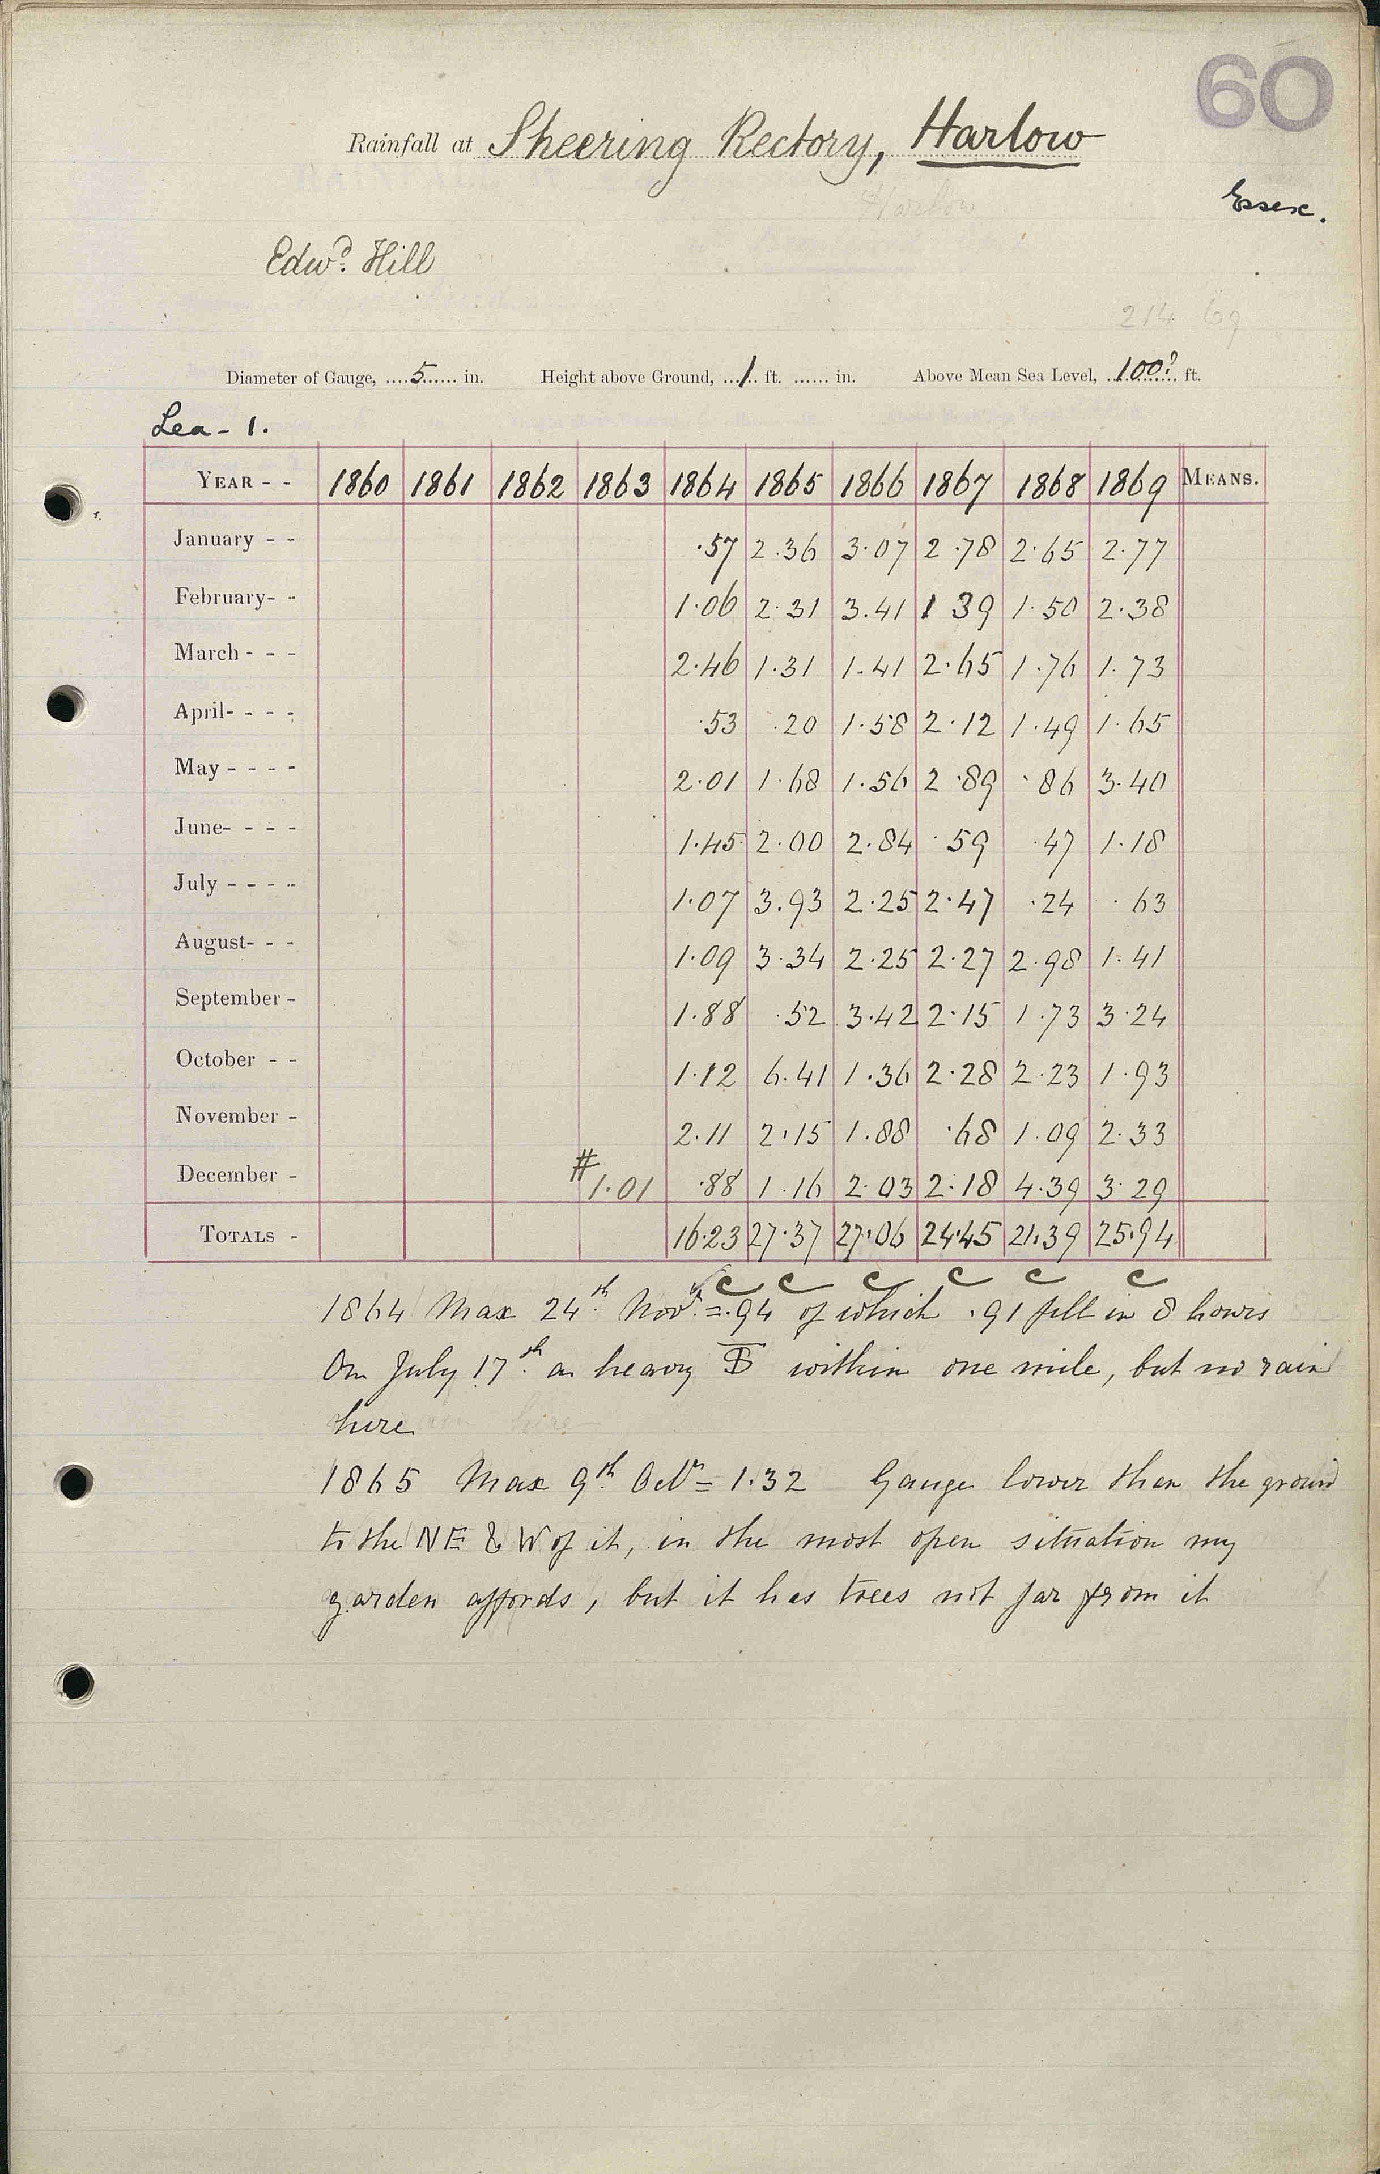 60
Rainfall at Sheering Rectory, Harlow
Harlow
Essex.
Edwd. Hill
214 69
Diameter of Gauge, ....5...... in. Height above Ground, ...1.. ft. ...... in. Above Mean Sea Level, ..100?.. ft.
Lea - 1.
YEAR - - 1860 1861 1862 1863 1864 1865 1866 1867 1868 1869 MEANS.
January - - .57 2.36 3.07 2.78 2.65 2.77
February- - 1.06 2.31 3.41 1 39 1.50 2.38
March - - - 2.46 1.31 1.41 2.65 1.76 1.73
April- - - - .53 .20 1.58 2.12 1.49 1.65
May - - - - 2.01 1.68 1.56 2.89 .86 3.40
June- - - - 1.45 2.00 2.84 .59 .47 1.18
July - - - - 1.07 3.93 2.25 2.47 .24 .63
August- - - 1.09 3.34 2.25 2.27 2.98 1.41
September - 1.88 .52 3.42 2.15 1.73 3.24
October - - 1.12 6.41 1.36 2.28 2.23 1.93
November - 2.11 2.15 1.88 .68 1.09 2.33
December - #1.01 .88 1.16 2.03 2.18 4.39 3.29
TOTALS - 16.23 27.37 27.06 24.45 21.39 25.94
c c c c c c
1864 Max 24th Novr = .94 of which .91 fell in 8 hours
On July 17th a heavy TS within one mile, but no rain
here
1865 Max 9th Octr = 1.32 Gauge lower than the ground
to the NE & W of it, in the most open situation my
garden affords, but it has trees not far from it